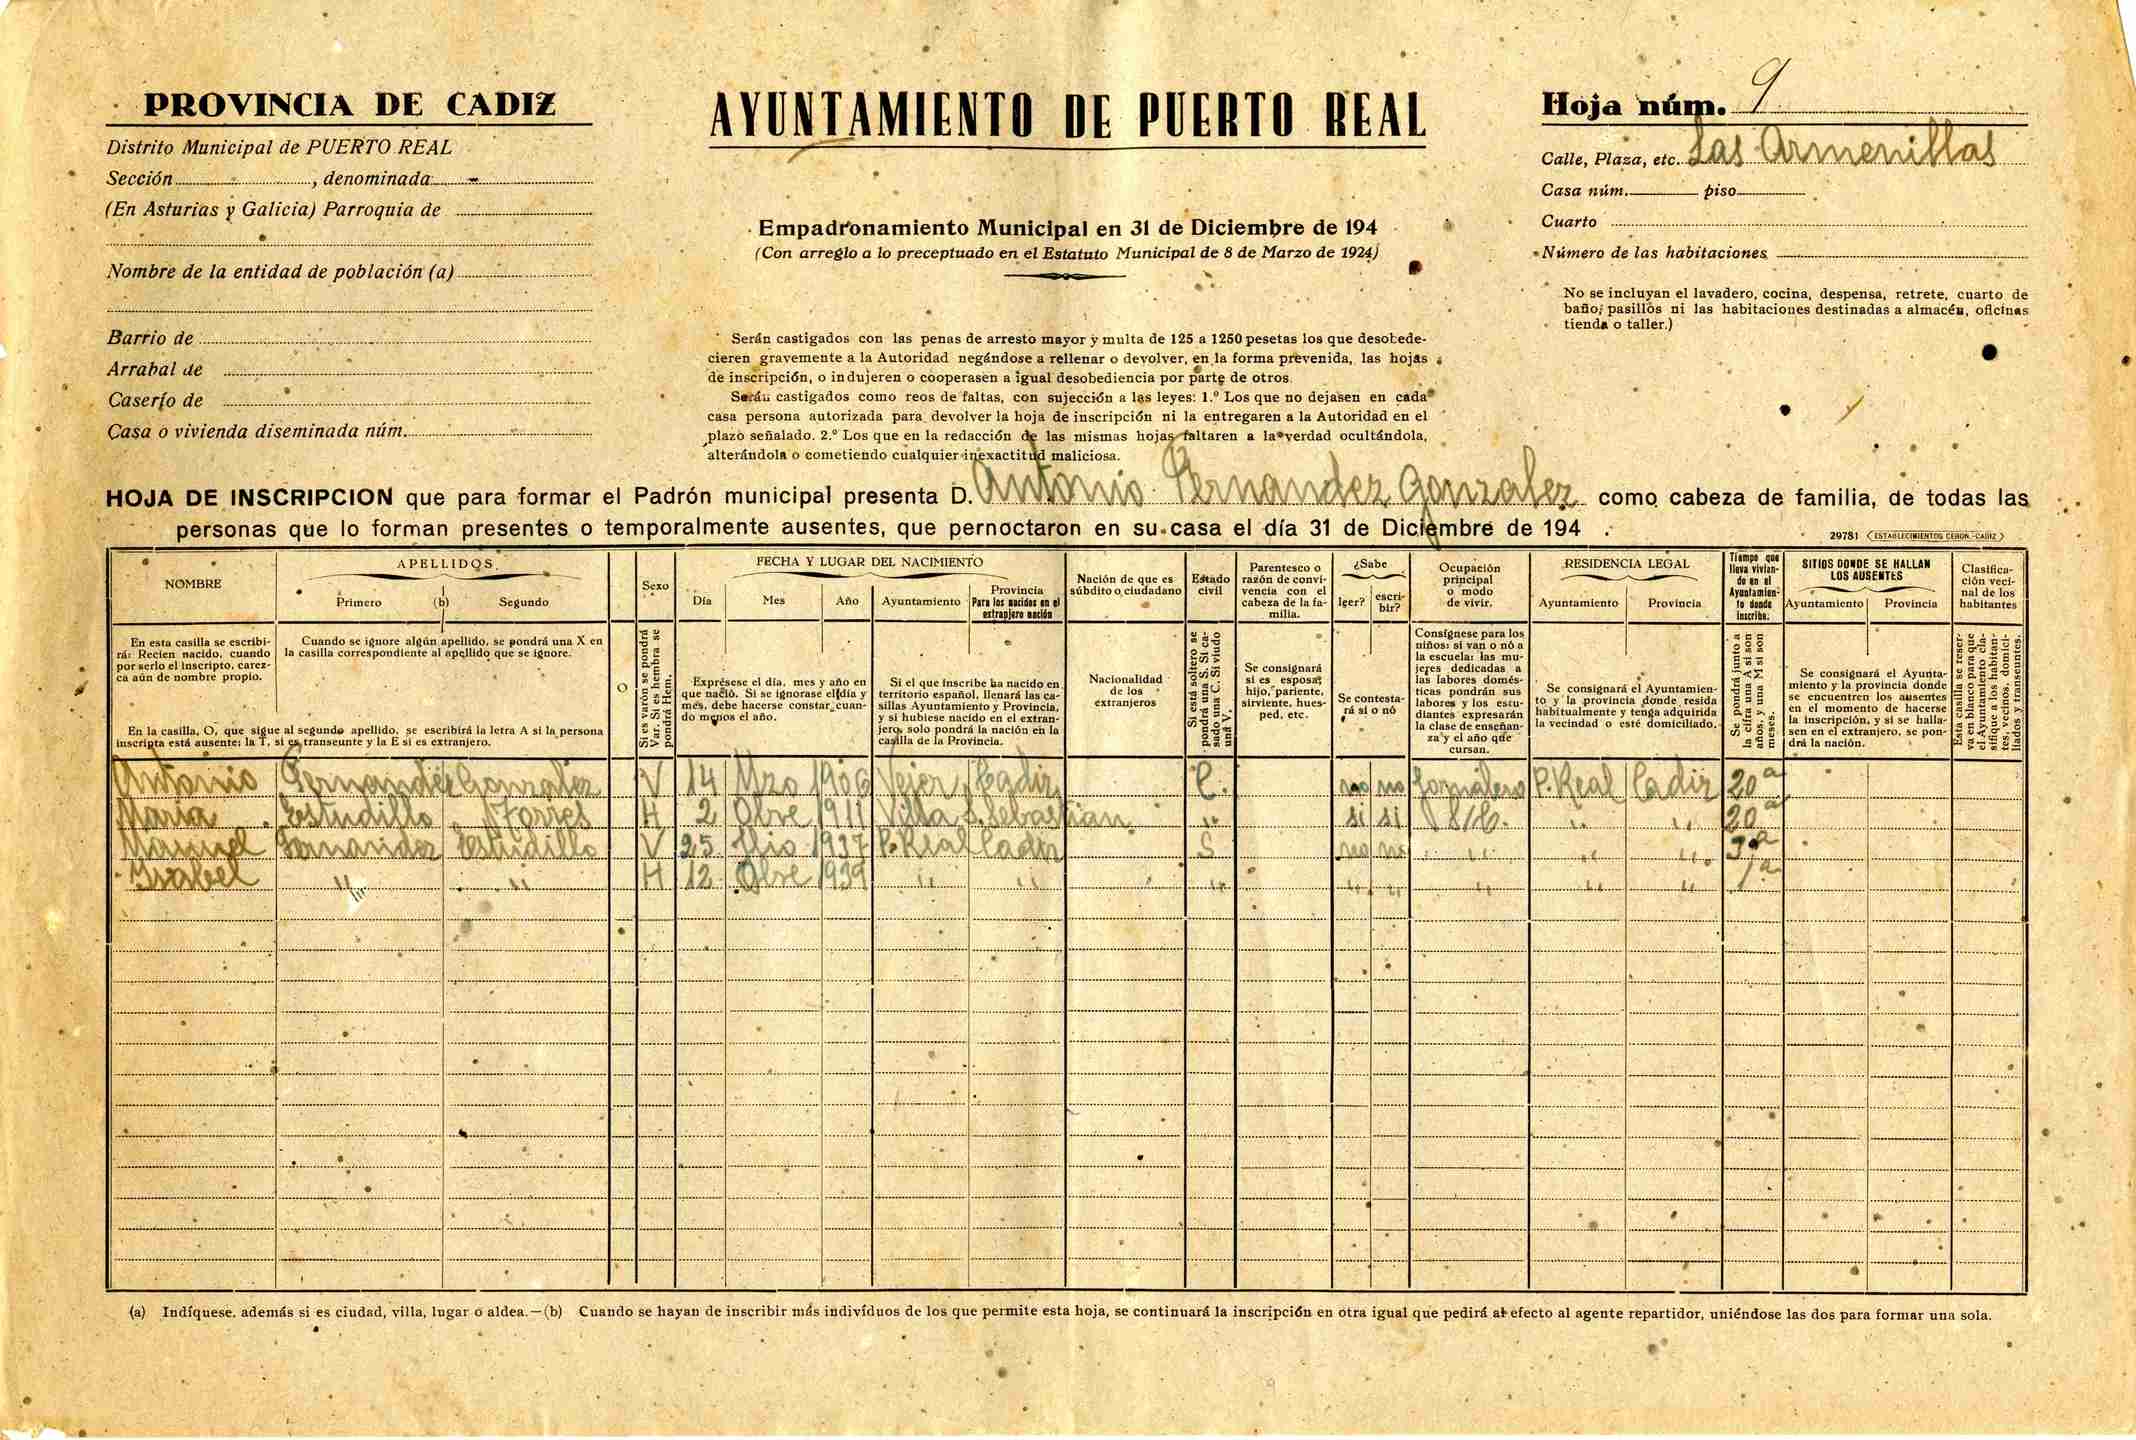 PROVINCIA DE CADIZ
Distrito Municipal de PUERTO REAL
Sección , denominada
(En Asturias y Galicia) Parroquia de
Nombre de la entidad de población (a)
Barrio de
Arrabal de
Caserío de
Casa o vivienda diseminada núm.
AYUNTAMIENTO DE PUERTO REAL
Empadronamiento Municipal en 31 de Diciembre de 194
(Con arreglo a lo preceptuado en el Estatuto Municipal de 8 de Marzo de 1924)
Serán castigados con las penas de arresto mayor y multa de 125 a 1250 pesetas los que desobede-
cieren gravemente a la Autoridad negándose a rellenar o devolver, en la forma prevenida, las hojas
de inscripción, o indujeren o cooperasen a igual desobediencia por parte de otros.
Serán castigados como reos de faltas, con sujección a las leyes: 1.º Los que no dejasen en cada
casa persona autorizada para devolver la hoja de inscripción ni la entregaren a la Autoridad en el
plazo señalado. 2.º Los que en la redacción de las mismas hojas faltaren a la verdad ocultándola,
alterándola o cometiendo cualquier inexactitud maliciosa.
Hoja núm. 9
Calle, Plaza, etc. Las Armenillas
Casa núm. piso
Cuarto
Número de las habitaciones
No se incluyan el lavadero, cocina, despensa, retrete, cuarto de
baño, pasillos ni las habitaciones destinadas a almacén, oficinas
tienda o taller.)
HOJA DE INSCRIPCION que para formar el Padrón municipal presenta D. Antonio Fernandez Gonzalez como cabeza de familia, de todas las
personas que lo forman presentes o temporalmente ausentes, que pernoctaron en su casa el día 31 de Diciembre de 194 .
29781 (ESTABLECIMIENTOS CERON.-CADIZ)
NOMBRE
APELLIDOS
Primero (b) Segundo
Sexo
FECHA Y LUGAR DEL NACIMIENTO
Día Mes Año Ayuntamiento
Provincia
Para los nacidos en el
extranjero nación
Nación de que es
súbdito o ciudadano
Estado
civil
Parentesco o
razón de convi-
vencia con el
cabeza de la fa-
milia.
¿Sabe
leer? escri-
bir?
Ocupación
principal
o modo
de vivir.
RESIDENCIA LEGAL
Ayuntamiento Provincia
Tiempo que
lleva vivien-
do en el
Ayuntamien-
to donde
inscribe.
SITIOS DONDE SE HALLAN
LOS AUSENTES
Ayuntamiento Provincia
Clasifica-
ción veci-
nal de los
habitantes
En esta casilla se escribi-
rá: Recien nacido, cuando
por serlo el inscripto, carez-
ca aún de nombre propio.
Cuando se ignore algún apellido, se pondrá una X en
la casilla correspondiente al apellido que se ignore.
En la casilla, O, que sigue al segundo apellido, se escribirá la letra A si la persona
inscripta está ausente; la T, si es transeunte y la E si es extranjero.
O
Si es varón se pondrá
Var. Si es hembra se
pondrá Hem.
Expresese el día, mes y año en
que nació. Si se ignorase el día y
mes, debe hacerse constar cuan-
do menos el año.
Si el que inscribe ha nacido en
territorio español, llenará las ca-
sillas Ayuntamiento y Provincia,
y si hubiese nacido en el extran-
jero, solo pondrá la nación en la
casilla de la Provincia.
Nacionalidad
de los
extranjeros
Si está soltero se
pondrá una S. Si ca-
sado una C. Si viudo
una V.
Se consignará
si es esposa,
hijo, pariente,
sirviente, hues-
ped, etc.
Se contesta-
rá si o nó
Consígnese para los
niños: si van o nó a
la escuela: las mu-
jeres dedicadas a
las labores domés-
ticas pondrán sus
labores y los estu-
diantes expresarán
la clase de enseñan-
za y el año que
cursan.
Se consignará el Ayuntamien-
to y la provincia donde resida
habitualmente y tenga adquirida
la vecindad o esté domiciliado.
Se pondrá junto a
la cifra una A si son
años, y una M si son
meses.
Se consignará el Ayunta-
miento y la provincia donde
se encuentren los ausentes
en el momento de hacerse
la inscripción, y si se halla-
sen en el extranjero, se pon-
drá la nación.
Esta casilla se reser-
va en blanco para que
el Ayuntamiento cla-
sifique a los habitan-
tes, vecinos, domici-
liados y transeuntes.
Antonio Fernandez Gonzalez V 14 Mzo 1906 Vejer Cadiz C. no no Jornalero P. Real Cadiz 20 a
Maria Estudillo Torres H 2 Obre 1911 Villa S. Sebastian " si si " " 20 a
Manuel Fernandez Estudillo V 25 1937 P. Real Cadiz S no no " " " 3 a
Isabel " " H 12 Obre 1939 " " " " " " " " 1 a
(a) Indíquese, además si es ciudad, villa, lugar o aldea.—(b) Cuando se hayan de inscribir más individuos de los que permite esta hoja, se continuará la inscripción en otra igual que pedirá al efecto al agente repartidor, uniéndose las dos para formar una sola.